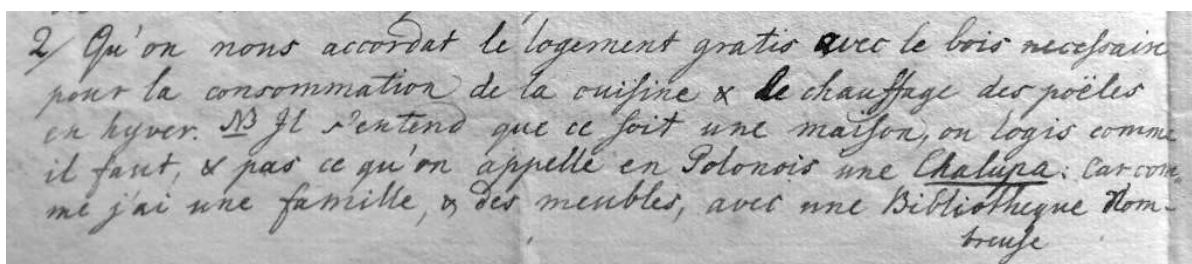 2/ Qu'on nous accordat le logement gratis avec le bois necessaire
pour la consommation de la cuisine & le chauffage des poëles
en hyver. NB Il s'entend que ce soit une maison, ou logis comme
il faut, & pas ce qu'on appelle en Polonois une Chalupa: car com-
me j'ai une famille, & des meubles, avec une Bibliotheque Nom-
breuse